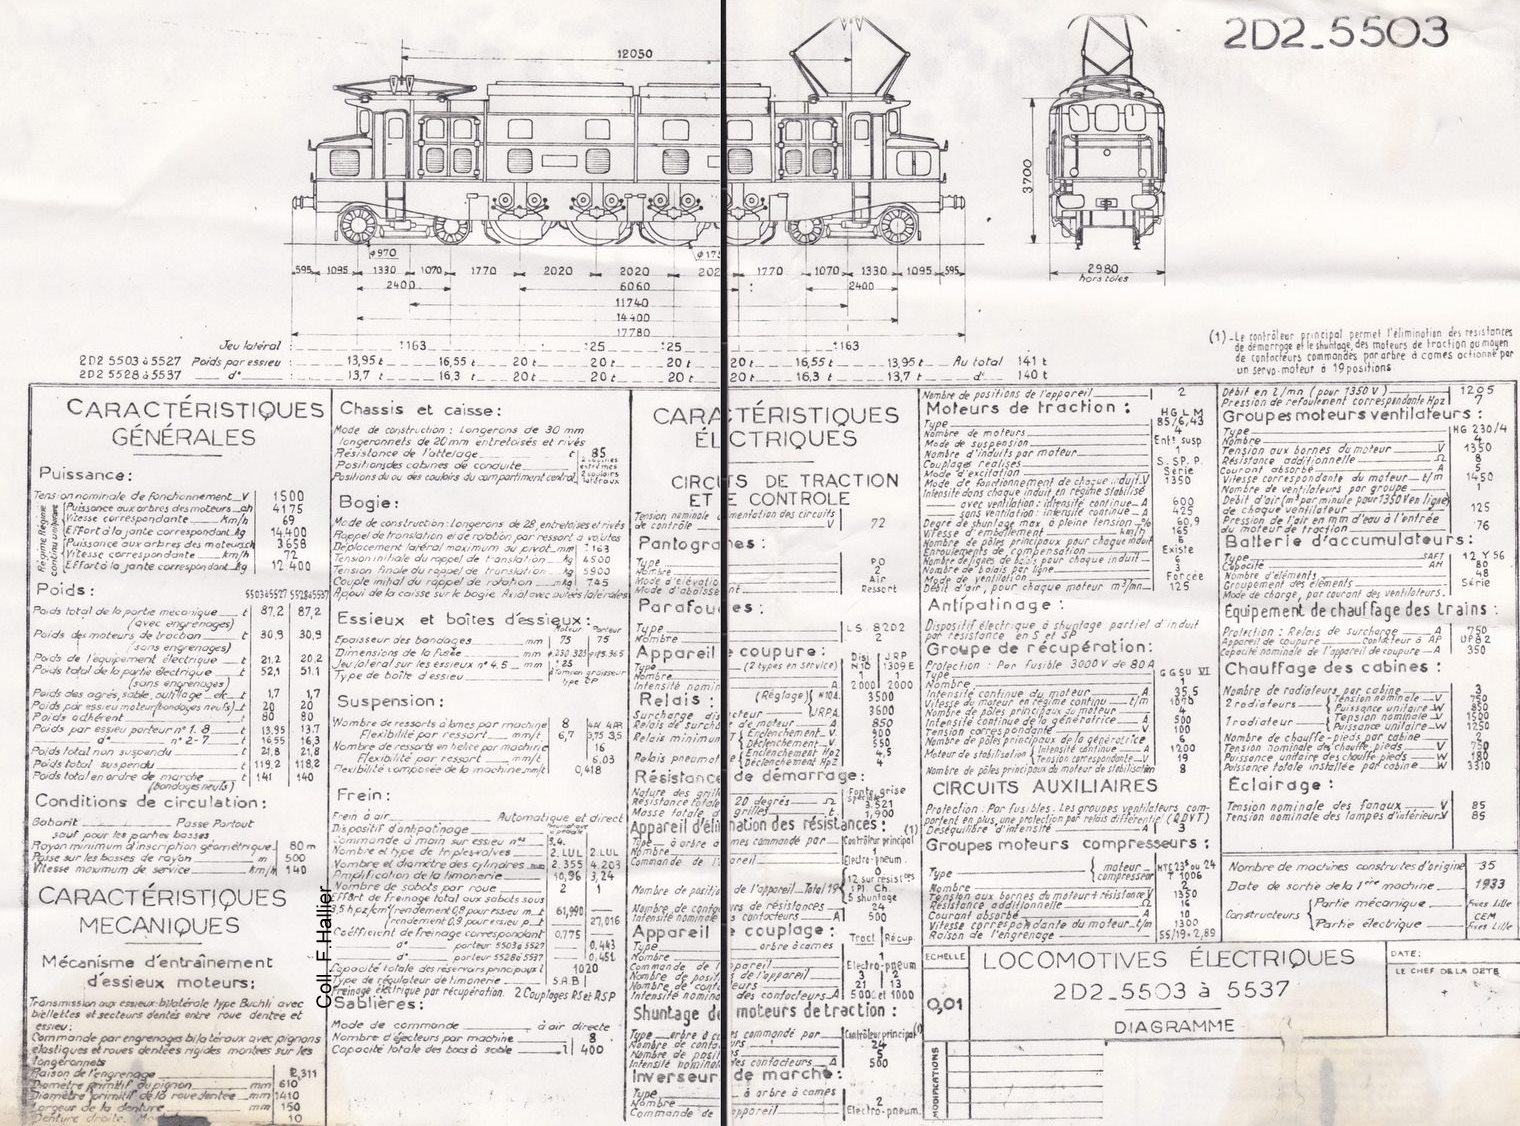 2D2_5503
12050
3700
φ970
595 1095 1330 1070 1770 2020 2020 1770 1070 1330 1095 595
2400 6060 2400
11740
14400
17780
2980
hors tôles
Jeu latéral : ±163 ±25 ±25 ±163
2D2 5503 à 5527 Poids par essieu 13,95 t 16,55 t 20 t 20 t 20 t 20 t 16,55 t 13,95 t Au total 141 t
2D2 5528 à 5537 d° 13,7 t 16,3 t 20 t 20 t 20 t 20 t 16,3 t 13,7 t d° 140 t
(1)_Le contrôleur principal permet l'élimination des résistances
de démarrage et le shuntage, des moteurs de traction au moyen
de contacteurs commandés par arbre à cames actionné par
un servo-moteur à 19 positions
CARACTÉRISTIQUES
GÉNÉRALES
Puissance :
Tension nominale de fonctionnement V 1500
Puissance aux arbres des moteurs ch 4175
Vitesse correspondante km/h 69
Effort à la jante correspondant kg 14.400
Puissance aux arbres des moteurs ch 3658
Vitesse correspondante km/h 72
Effort à la jante correspondant kg 12.400
Poids :
5503 à 5527 5528 à 5537
Poids total de la partie mécanique t 87,2 87,2
(avec engrenages)
Poids des moteurs de traction t 30,9 30,9
(sans engrenages)
Poids de l'équipement électrique t 21,2 20,2
Poids total de la partie électrique t 52,1 51,1
(sans engrenages)
Poids des agrès, sable, outillage etc t 1,7 1,7
Poids par essieu moteur (bandages neufs) t 20 20
Poids adhérent t 80 80
Poids par essieu porteur n° 1. 8 t 13,95 13.7
d° n° 2-7 t 16,55 16,3
Poids total non suspendu t 21,8 21,8
Poids total suspendu t 119,2 118,2
Poids total en ordre de marche t 141 140
(bandages neufs)
Conditions de circulation :
Gabarit Passe Partout
sauf pour les parties basses
Rayon minimum d'inscription géométrique 80 m
Passe sur les bosses de rayon m 500
Vitesse maximum de service km/h 140
CARACTÉRISTIQUES
MECANIQUES
Mécanisme d'entraînement
d'essieux moteurs :
Transmission aux essieux bilatérale type Buchli avec
biellettes et secteurs dentés entre roue dentée et
essieu ;
Commande par engrenages bilatéraux avec pignons
élastiques et roues dentées rigides montées sur les
longeronnets
Raison de l'engrenage 2,311
Diamètre primitif du pignon mm 610
Diamètre primitif de la roue dentée mm 1410
Largeur de la denture mm 150
Denture droite. 10
Coll. F. Hallier
Chassis et caisse :
Mode de construction : Longerons de 30 mm
longeronnets de 20 mm entretoisés et rivés
Résistance de l'attelage t 85
Position des cabines de conduite 2 cabines extrêmes
Position du ou des couloirs du compartiment central 2 couloirs latéraux
Bogie :
Mode de construction : Longerons de 28, entretoisés et rivés
Rappel de translation et de rotation, par ressort à volutes
Déplacement latéral maximum au pivot mm ±163
Tension initiale du rappel de translation kg 4500
Tension finale du rappel de translation kg 5900
Couple initial du rappel de rotation mkg 745
Essieux et boîtes d'essieux :
Moteur Porteur
Epaisseur des bandages mm 75 75
Dimensions de la fusée mm
Jeu latéral sur les essieux n° 4.5 mm ±25
Type de boîte d'essieu
Suspension :
Nombre de ressorts à lames par machine 8
Flexibilité par ressort mm/t 6,7
Nombre de ressorts en hélice par machine 16
Flexibilité par ressort mm/t 6,03
Flexibilité composée de la machine mm/t 0,418
Frein :
Frein à air Automatique et direct
Dispositif d'antipatinage
Commande à main sur essieu n° 3.4.
Nombre et type de triples valves 2. LUL 2. LUL
Nombre et diamètre des cylindres mm 2. 355 4. 203
Amplification de la timonerie 10,96 3,24
Nombre de sabots par roue 2 1
Effort de freinage total aux sabots sous
3,5 hpz/cm² rendement 0,8 pour essieu m. t 61,990
rendement 0,9 pour essieu p. 27,016
Coefficient de freinage correspondant 0,775
d° porteur 5503 à 5527 0,443
d° porteur 5528 à 5537 0,451
Capacité totale des réservoirs principaux l 1020
Type de régulateur de timonerie S.A.B
Freinage électrique par récupération. 2 Couplages RS et RSP
Sablières :
Mode de commande à air directe
Nombre d'éjecteurs par machine 8
Capacité totale des bacs à sable l 400
CARACTÉRISTIQUES
ÉLECTRIQUES
CIRCUITS DE TRACTION
ET DE CONTROLE
Tension nominale
de contrôle V 72
Type PO
Nombre 2
Air
Ressort
Type LS. 82D2
Nombre 2
Appareil de coupure :
Type (2 types en service) Disj N 10 JRP 1309 E
Nombre 1 1
2000 2000
Relais :
(Réglage) 3500
3600
850
Enclenchement V 900
Déclenchement V 550
Enclenchement Hpz 4,5
Déclenchement Hpz 4
Résistances de démarrage :
Fonte grise
20 degrés Ω 3.521
t 1,900
Appareil d'élimination des résistances :
Contrôleur principal
Nombre 1
Electro-pneum.
24
contacteurs A 500
Appareil de couplage :
Tract Récup.
Type arbre à cames
Nombre 1
Electro-pneum
3 2
21 13
des contacteurs A 500 et 1000
Shuntage des moteurs de traction :
Contrôleur principal
24
5
des contacteurs A 500
Inverseur de marche :
Type à arbre à cames
Nombre 2
Commande de l'appareil Electro-pneum.
Nombre de positions de l'appareil 2
Moteurs de traction :
Type HGLM 85/6,43
Nombre de moteurs 4
Mode de suspension Ent. susp
Nombre d'induits par moteur 1
Couplages réalisés S. SP. P.
Mode d'excitation Série
Mode de fonctionnement de chaque induit V 1350
Intensité dans chaque induit en régime stabilisé
avec ventilation : intensité continue A 600
sans ventilation : intensité continue A 425
Degré de shuntage max. à pleine tension % 60,9
Vitesse d'emballement km/h 165
Nombre de pôles principaux pour chaque induit 6
Enroulements de compensation Existe
Nombre de lignes de balais pour chaque induit
Nombre de balais par ligne 3
Mode de ventilation Forcée
Débit d'air, pour chaque moteur m³/mn 125
Antipatinage :
Dispositif électrique, à shuntage partiel d'induit
par résistance en S et SP
Groupe de récupération :
Protection : Par fusible 3000 V de 80 A
Type GGSU VI
Nombre 1
Intensité continue du moteur A 35,5
Vitesse du moteur en régime continu t/m 1070
Nombre de pôles principaux du moteur 4
Intensité continue de la génératrice A 500
Tension correspondante V 100
Nombre de pôles principaux de la génératrice 6
Moteur de stabilisation Intensité continue A 1200
Tension correspondante V 19
Nombre de pôles principaux du moteur de stabilisation 8
CIRCUITS AUXILIAIRES
Protection : Par fusibles. Les groupes ventilateurs com-
portent en plus, une protection par relais différentiel (QDVT)
Deséquilibre d'intensité A 3
Groupes moteurs compresseurs :
Type moteur HTC 23⁵ ou 24
compresseur T 1006
Nombre 2
Tension aux bornes du moteur + résistance V 1350
Résistance additionnelle Ω 16
Courant absorbé A 10
Vitesse correspondante du moteur t/m 1300
Raison de l'engrenage 55/19=2,89
Débit en l/mn (pour 1350 V) 1205
Pression de refoulement correspondante Hpz 7
Groupes moteurs ventilateurs :
Type HG 230/4
Nombre 4
Tension aux bornes du moteur V 1350
Résistance additionnelle Ω 8
Courant absorbé A 5
Vitesse correspondante du moteur t/m 1450
Nombre de ventilateurs par groupe 1
Débit d'air (m³ par minute pour 1350 V en ligne)
de chaque ventilateur 125
Pression de l'air en mm d'eau à l'entrée
du moteur de traction 76
Batterie d'accumulateurs :
Type SAFT 12 Y 56
Capacité AH 80
Nombre d'éléments 48
Groupement des éléments Série
Mode de charge, par courant des ventilateurs.
Equipement de chauffage des trains :
Protection : Relais de surcharge A 750
Appareil de coupure Contacteur à AP UP 82
Capacité nominale de l'appareil de coupure A 350
Chauffage des cabines :
Nombre de radiateurs par cabine 3
2 radiateurs Tension nominale V 750
Puissance unitaire W 850
1 radiateur Tension nominale V 1500
Puissance unitaire W 1250
Nombre de chauffe-pieds par cabine 2
Tension nominale des chauffe pieds V 750
Puissance unitaire des chauffe pieds W 180
Puissance totale installée par cabine W 3310
Éclairage :
Tension nominale des fanaux V 85
Tension nominale des lampes d'intérieur V 85
Nombre de machines construites d'origine 35
Date de sortie de la 1ère machine 1933
Constructeurs Partie mécanique Fives Lille
CEM
Partie électrique Fives Lille
ECHELLE
0,01
LOCOMOTIVES ÉLECTRIQUES
2D2_5503 à 5537
DIAGRAMME
DATE :
LE CHEF DE LA DETE
MODIFICATIONS